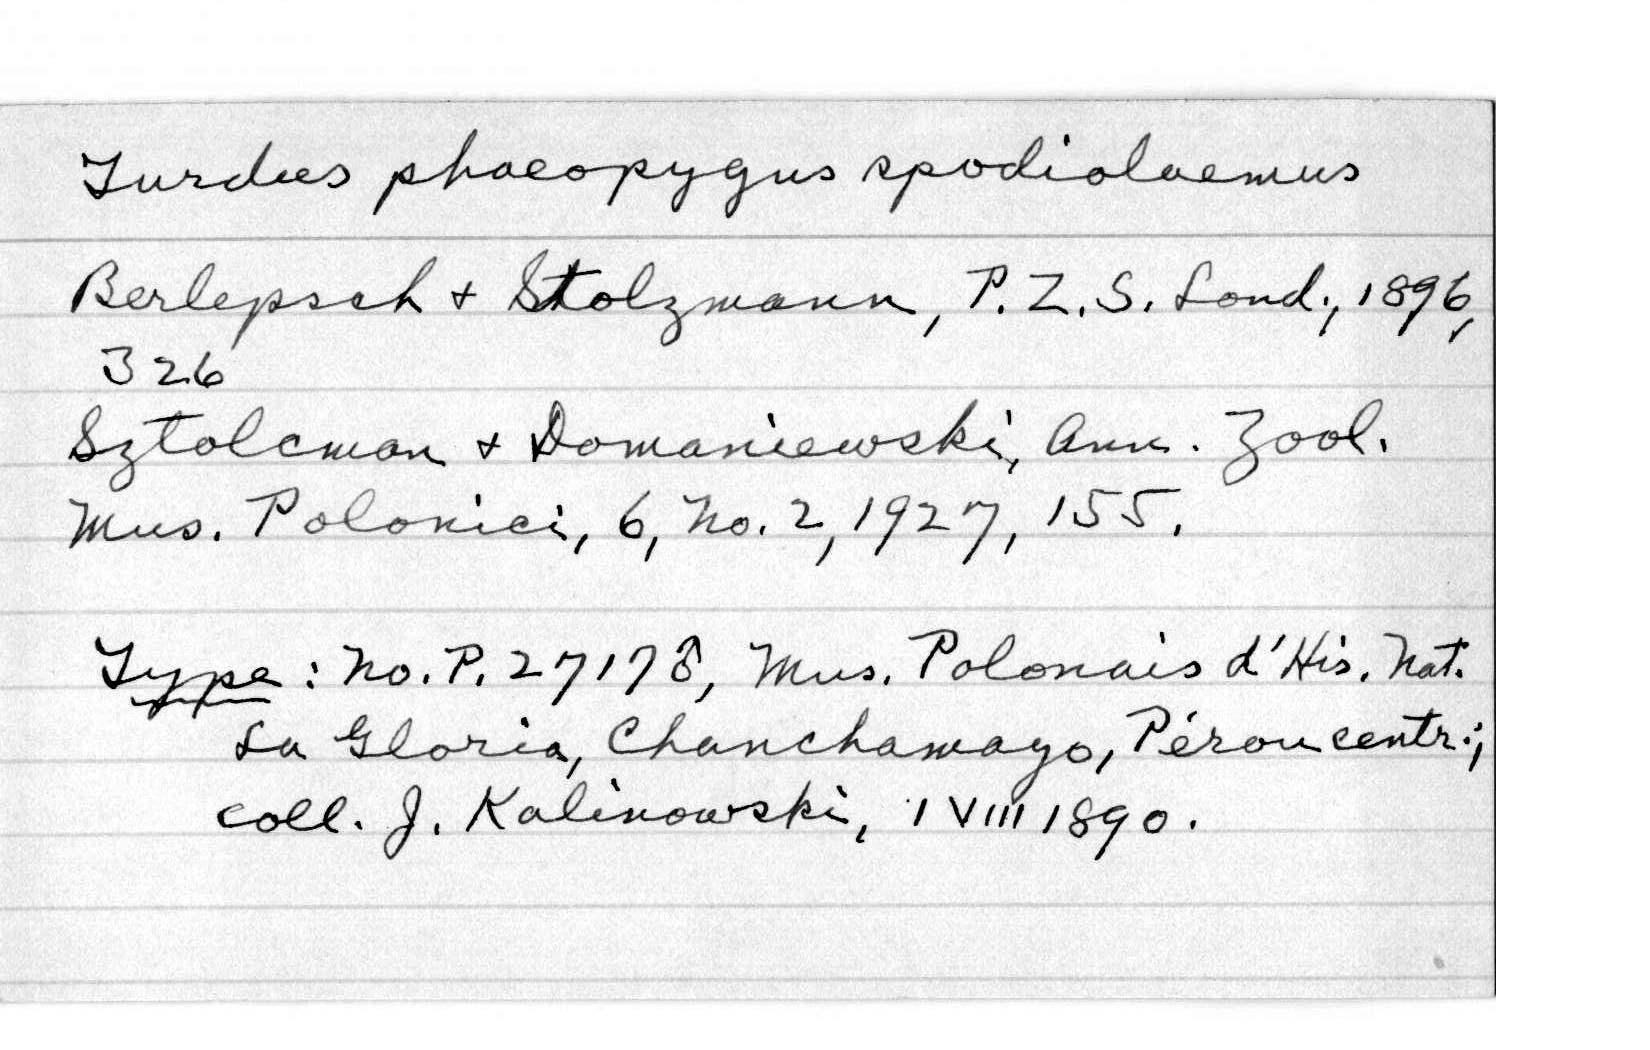 Turdus phaeopygus spodiolaemus
Berlepsch + Stolzmann, P. Z. S. Lond., 1896,
326
Sztolcman + Domaniewski, Ann. Zool.
Mus. Polonici, 6, No. 2, 1927, 155.
Type: No. P. 27178, Mus. Polonais d'His. Nat.
La Gloria, Chanchamayo, Pérou centr.;
coll. J. Kalinowski, 1 VIII 1890.